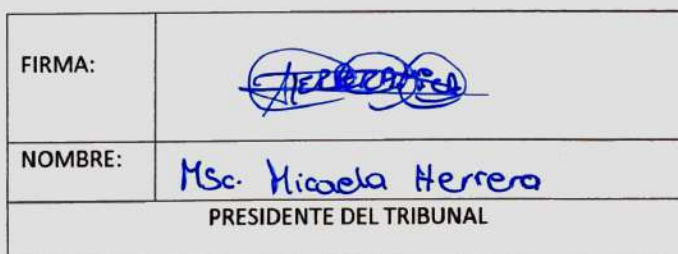 FIRMA:
NOMBRE: MSc. Micaela Herrera
PRESIDENTE DEL TRIBUNAL